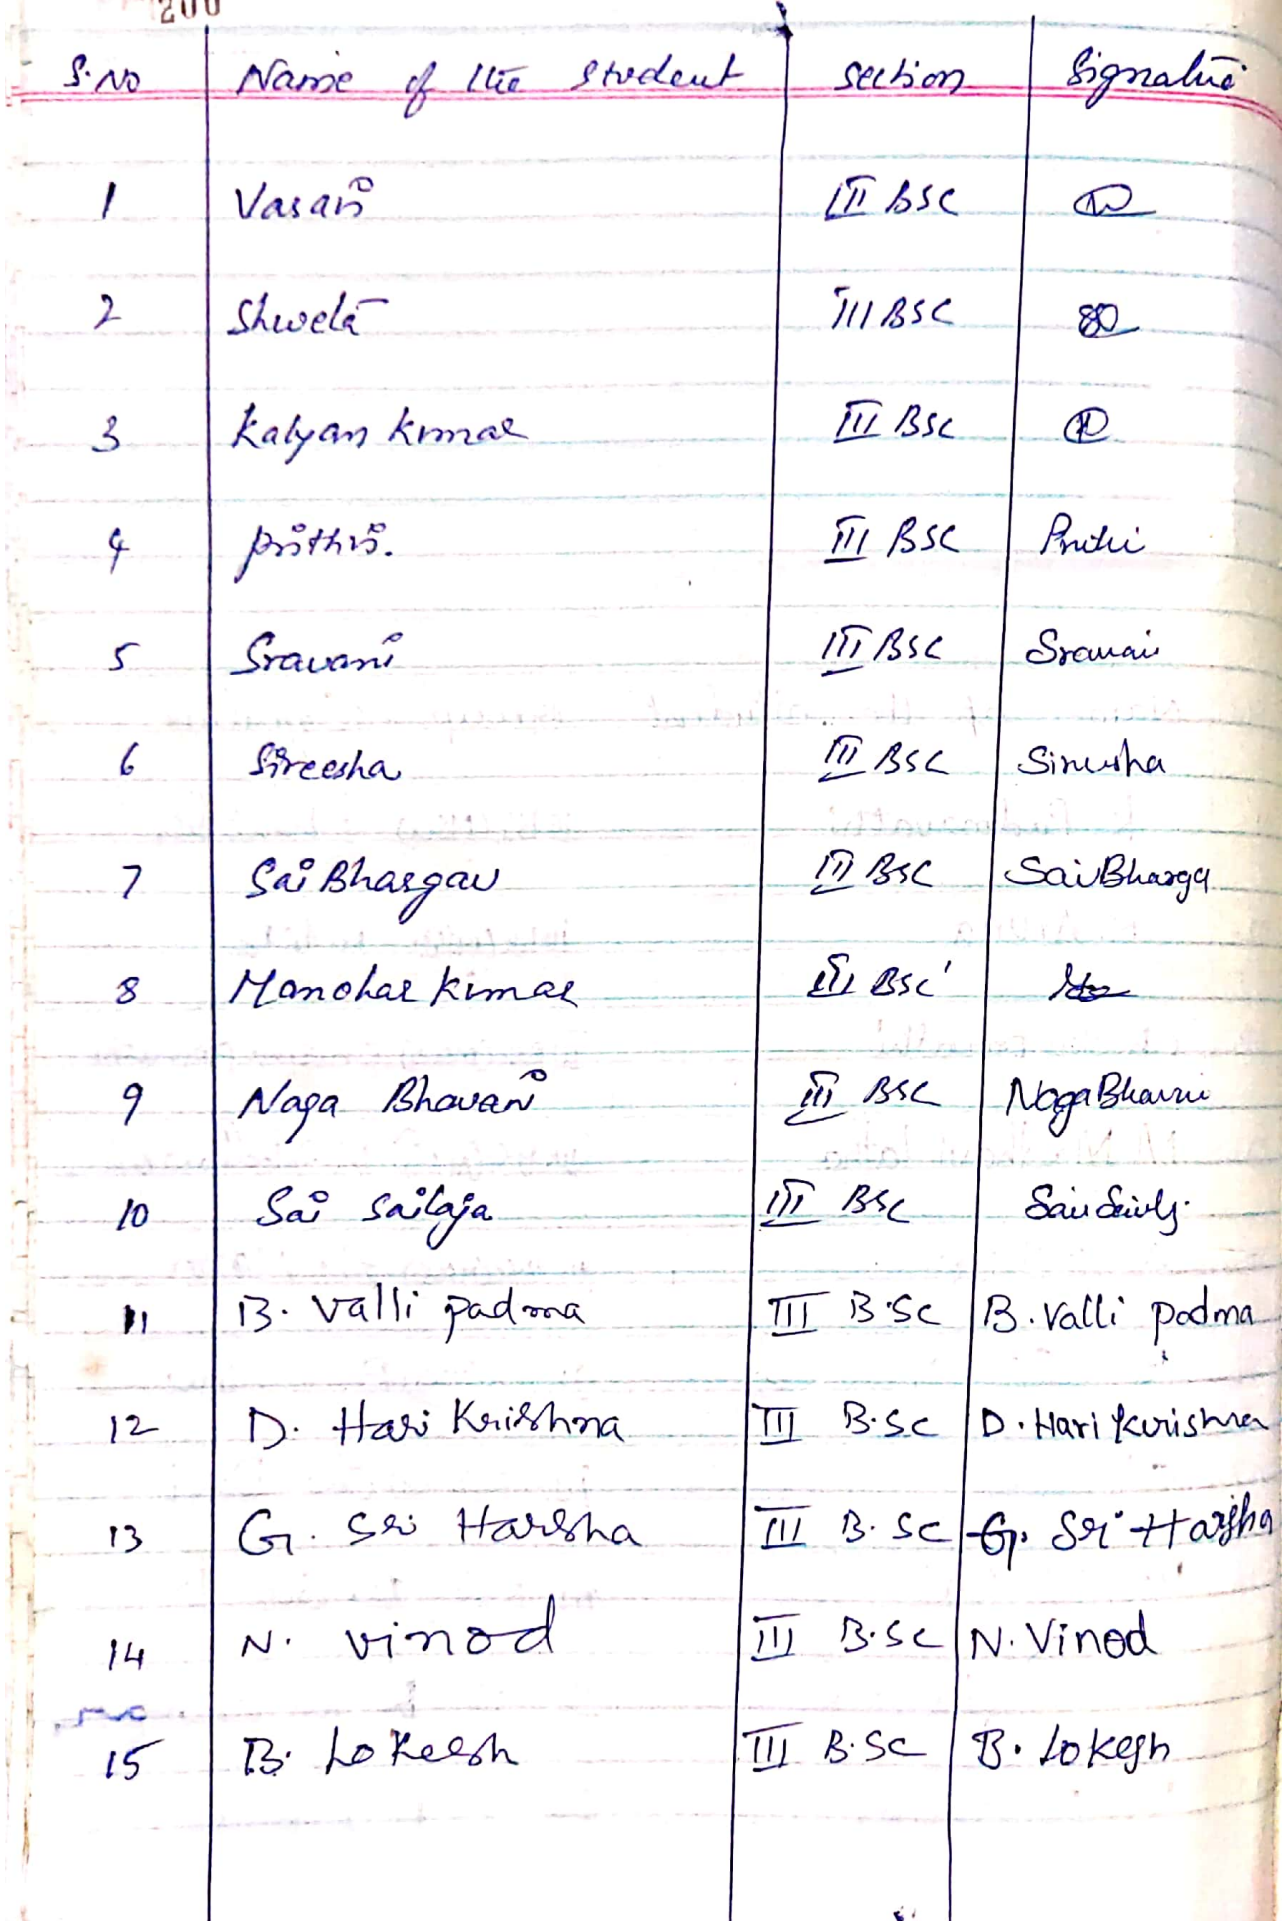 200
S.No Name of the student section Signature
1 Vasavi III BSC
2 Shweta III BSC
3 Kalyan Kumar III BSC
4 Prithvi. III BSC Prithi
5 Sravani III BSC Sravani
6 Sireesha III BSC Sireesha
7 Sai Bhargav III BSC Sai Bharga
8 Manohar Kumar III BSC
9 Naga Bhavani III BSC Naga Bhavani
10 Sai Sailaja III BSC Sai
11 B. Valli padma III B.Sc B. Valli padma
12 D. Hari Krishna III B.Sc D. Hari Krishna
13 G. Sri Harsha III B.Sc G. Sri Harsha
14 N. Vinod III B.Sc N. Vinod
15 B. Lokeesh III B.Sc B. Lokesh